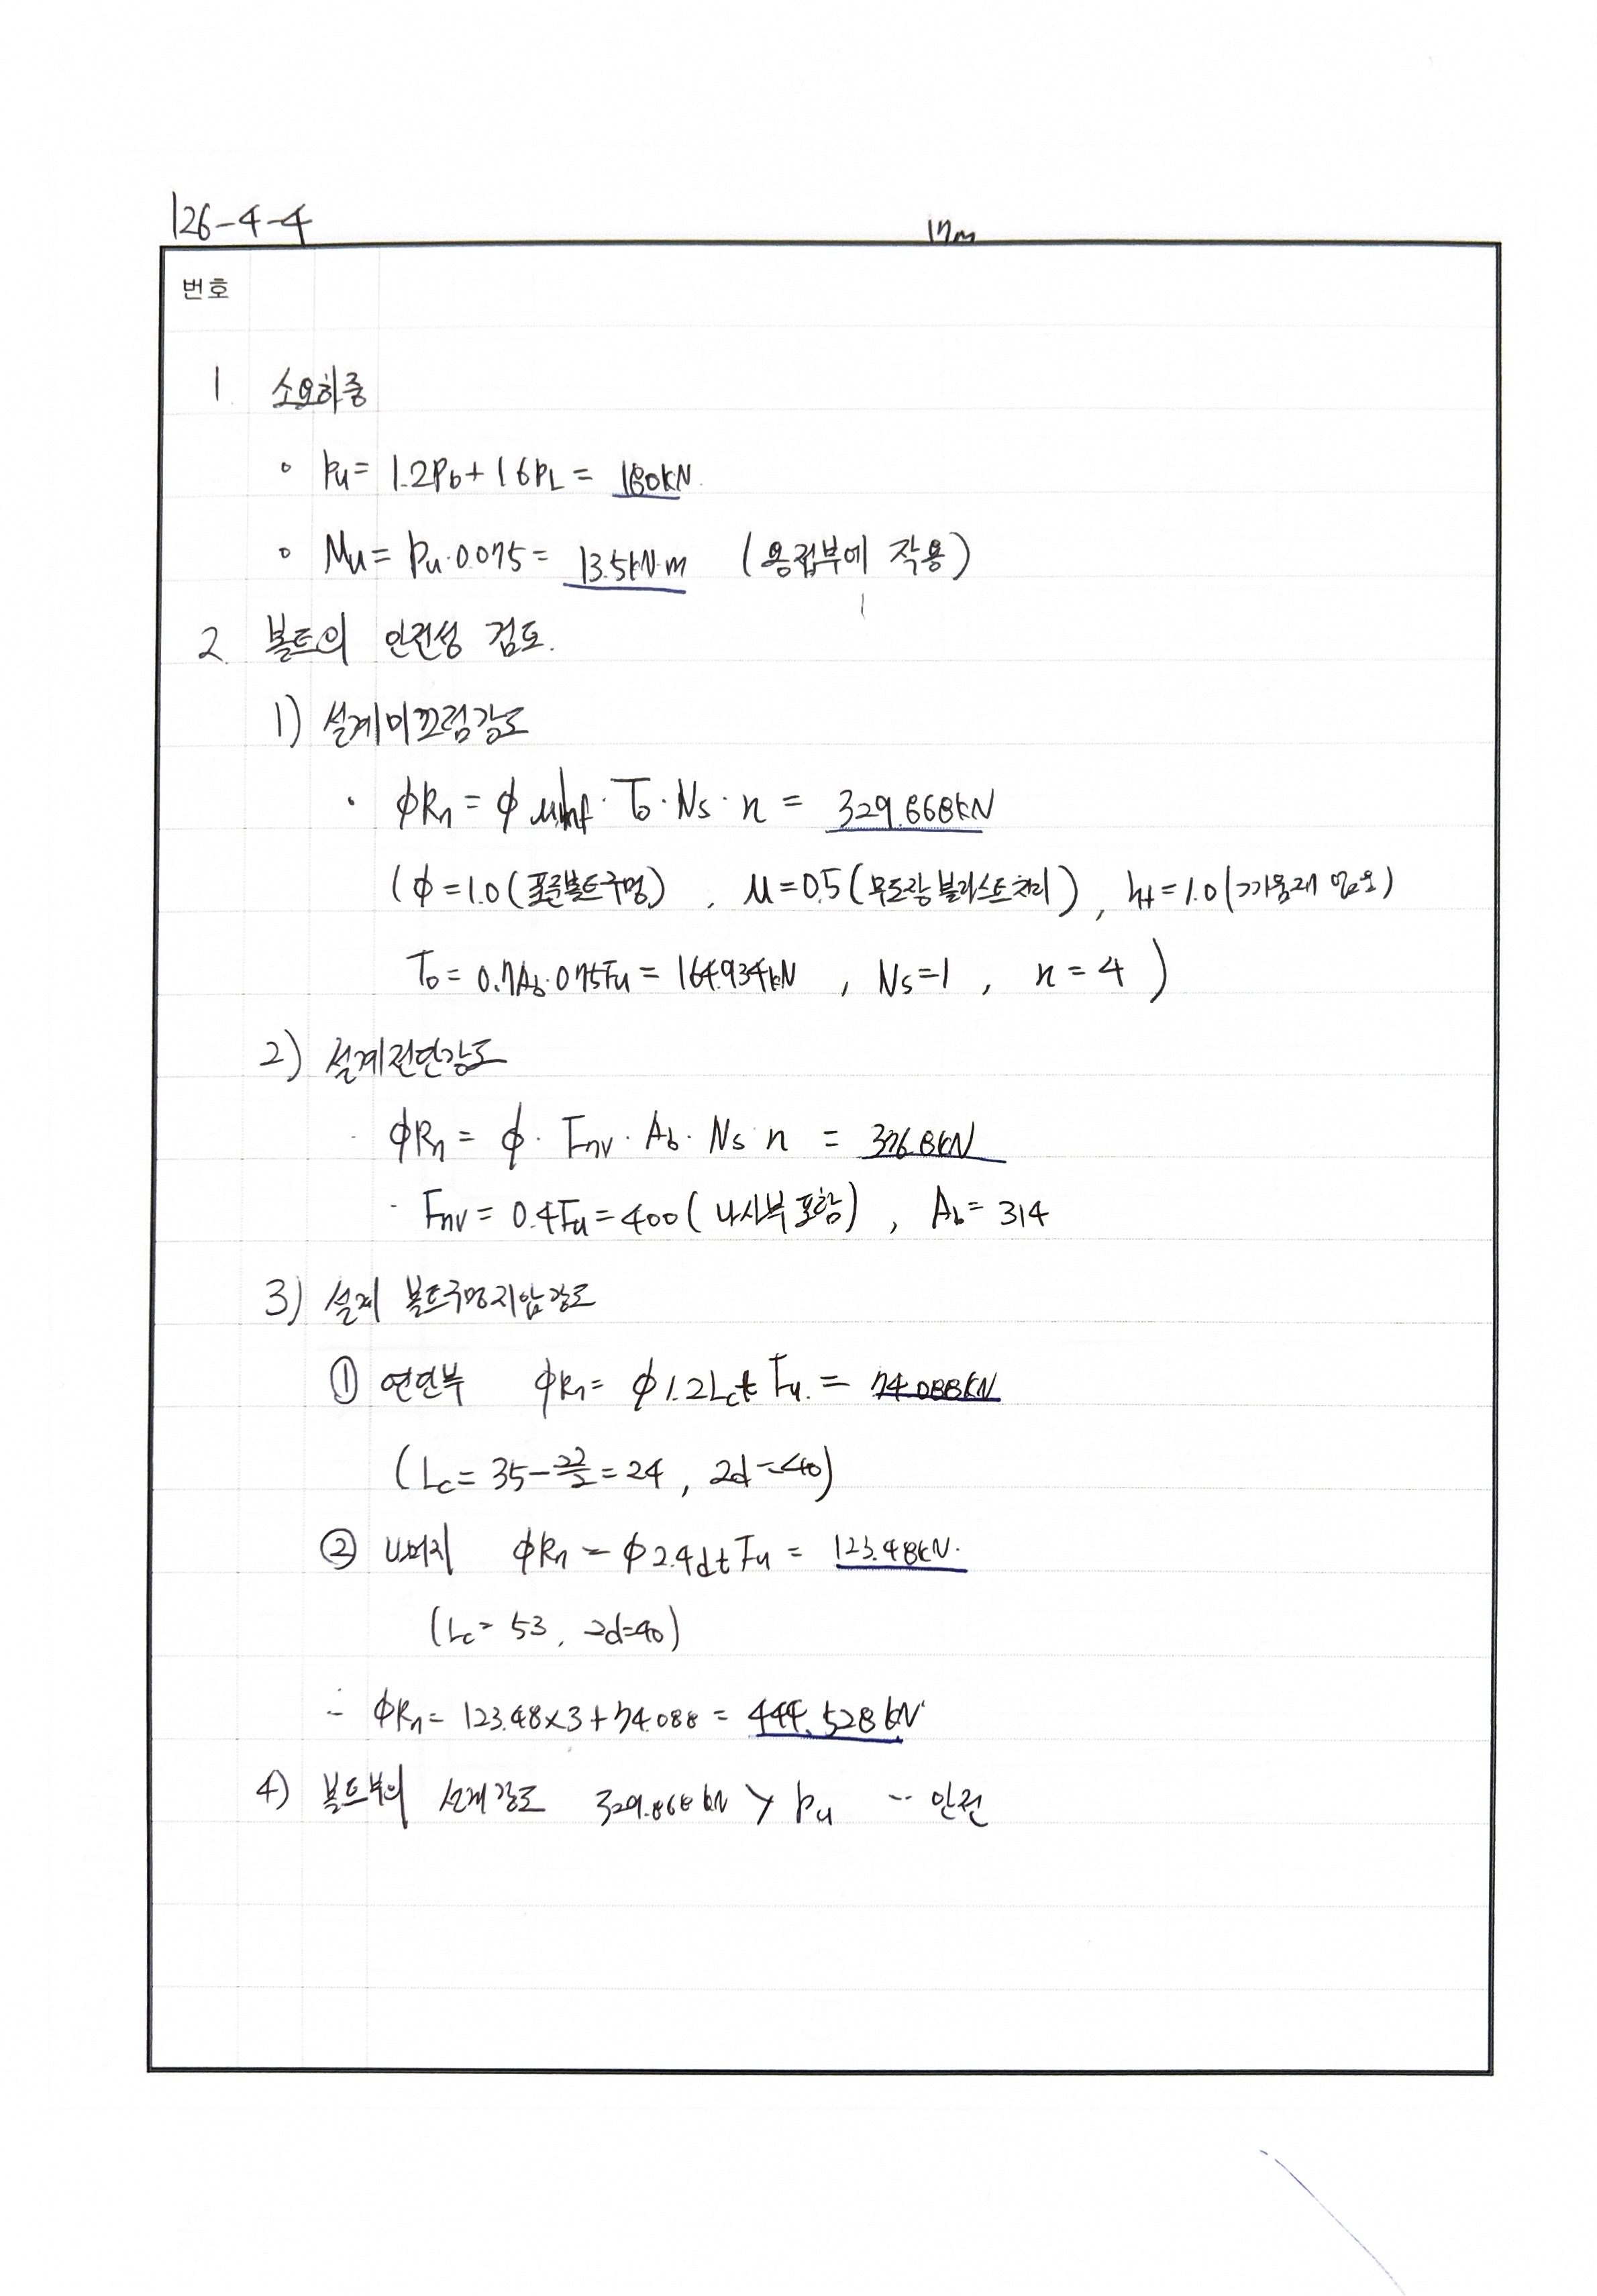 126-4-4
17m
번호
1. 소요하중
◦ Pu = 1.2PD + 1.6PL = 180kN.
◦ Mu = Pu·0.075 = 13.5kN·m (용접부에 작용)
2. 볼트의 안전성 검토.
1) 설계미끄럼강도
· ϕRn = ϕ μ hf · To · Ns · n = 329.868kN
(ϕ = 1.0 (표준볼트구멍) , μ = 0.5 (무도장블라스트처리) , hf = 1.0 (끼움재 없음)
To = 0.7Ab·0.75Fu = 164.934kN , Ns = 1 , n = 4 )
2) 설계전단강도
· ϕRn = ϕ · Fnv · Ab · Ns n = 376.8kN
· Fnv = 0.4Fu = 400 ( 나사부 포함) , Ab = 314
3) 설계 볼트구멍지압강도
① 연단부 ϕRn = ϕ 1.2Lct Fu. = 74.088kN
(Lc = 35 - 22/2 = 24 , 2d = 40)
② 나머지 ϕRn = ϕ 2.4dt Fu = 123.48kN.
(Lc = 53 , 2d = 40)
∴ ϕRn = 123.48×3 + 74.088 = 444.528kN
4) 볼트부의 설계강도 329.868kN > Pu ·· 안전